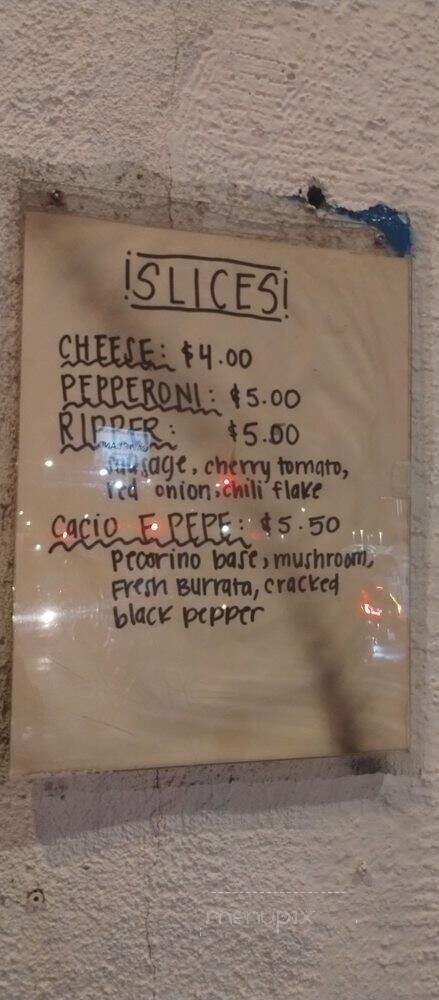 ¡SLICES!
CHEESE: $4.00
PEPPERONI: $5.00
RIPPER: $5.00
sausage, cherry tomato,
red onion, chili flake
Cacio E PEPE: $5.50
Pecorino base, mushroom,
Fresh Burrata, cracked
black pepper
menupix